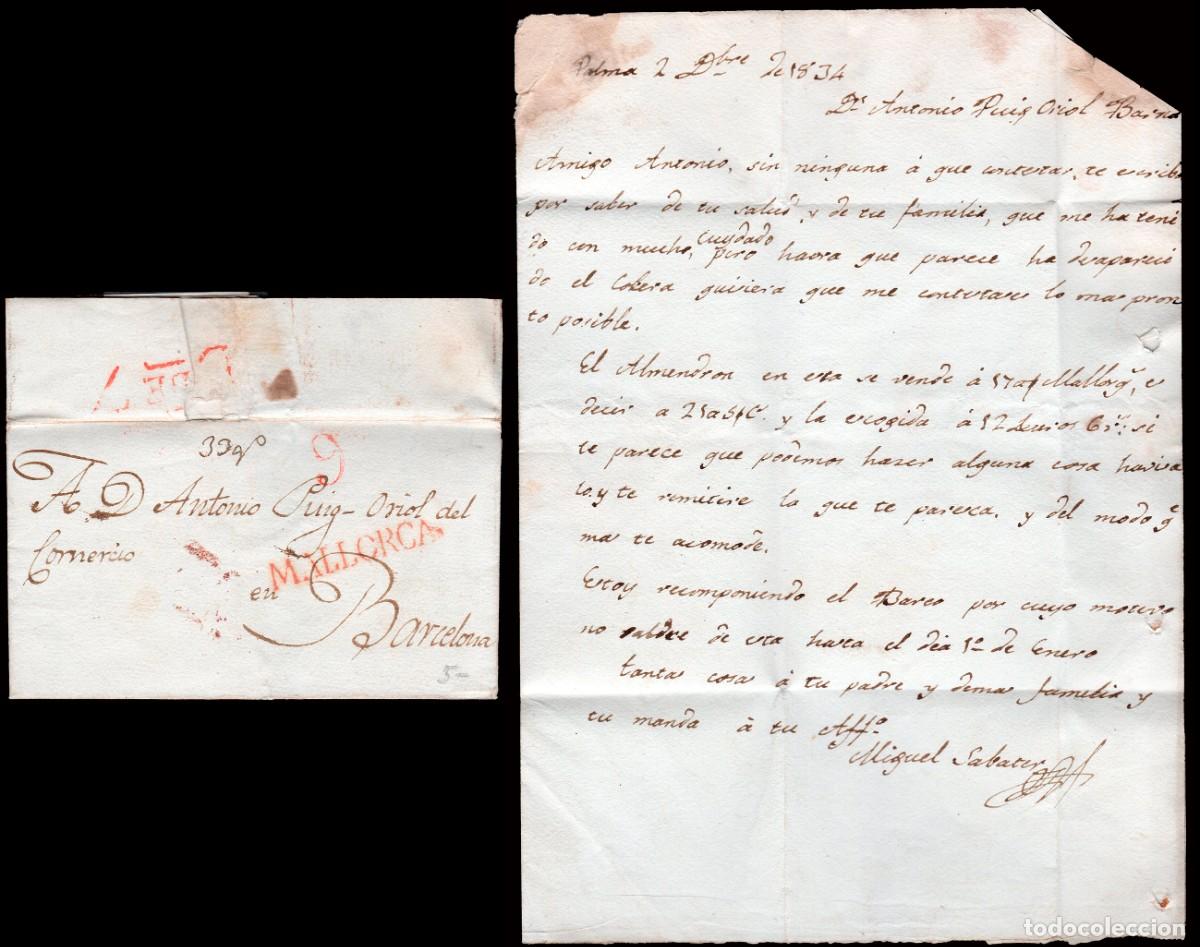 33 qº
9
A D Antonio Puig-Oriol del
Comercio
MALLORCA
en
Barcelona
5-
Palma 2 Dbre de 1834
Dn Antonio Puig Oriol Barna
Amigo Antonio, sin ninguna á que contestar, te escribo
por saber de tu salud, y de tu familia, que me ha teni
do con mucho, cuydado pero haora que parece ha desapareci
do el Colera quisiera que me contestases lo mas pron
to posible.
El Almendron en esta se vende á 17 Mallorqs, es
decir a 21 y la escogida á 12 duros 6 rs: si
te parece que podemos hazer alguna cosa havisa
lo, y te remitire la que te paresca, y del modo qe
mas te acomode.
Estoy recomponiendo el Barco por cuyo motivo
no saldre de esta hasta el dia 1º de Enero
tantas cosas á tu padre y demas familia y
tu manda á tu Affº
Miguel Sabater
todocoleccion